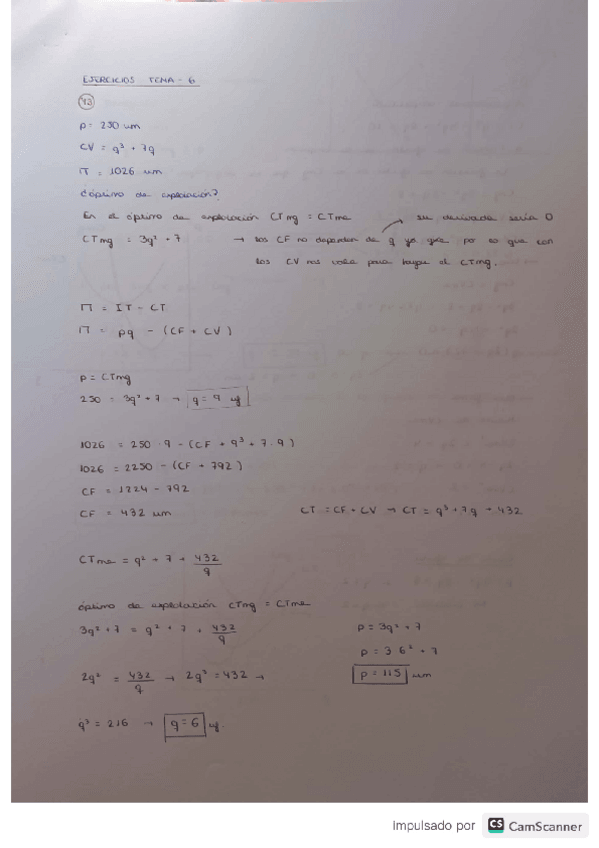 EJERCICIOS TEMA - 6
p = 250 um
CV = q³ + 7q
Π = 1026 um
¿óptimo de explotación?
En el óptimo de explotación CTmg = CTme
su derivada sería 0
CTmg = 3q² + 7 → los CF no dependen de q ya que por lo que con
los CV nos vale para el CTmg.
Π = IT - CT
Π = pq - (CF + CV)
p = CTmg
250 = 3q² + 7 → q = 9 uf
1026 = 250 · 9 - (CF + 9³ + 7 · 9)
1026 = 2250 - (CF + 792)
CF = 1224 - 792
CF = 432 um CT = CF + CV → CT = q³ + 7q + 432
CTme = q² + 7 + 432/q
óptimo de explotación CTmg = CTme
3q² + 7 = q² + 7 + 432/q p = 3q² + 7
p = 3 6² + 7
2q² = 432/q → 2q³ = 432 → p = 115 um
q³ = 216 → q = 6 uf.
Impulsado por CS CamScanner